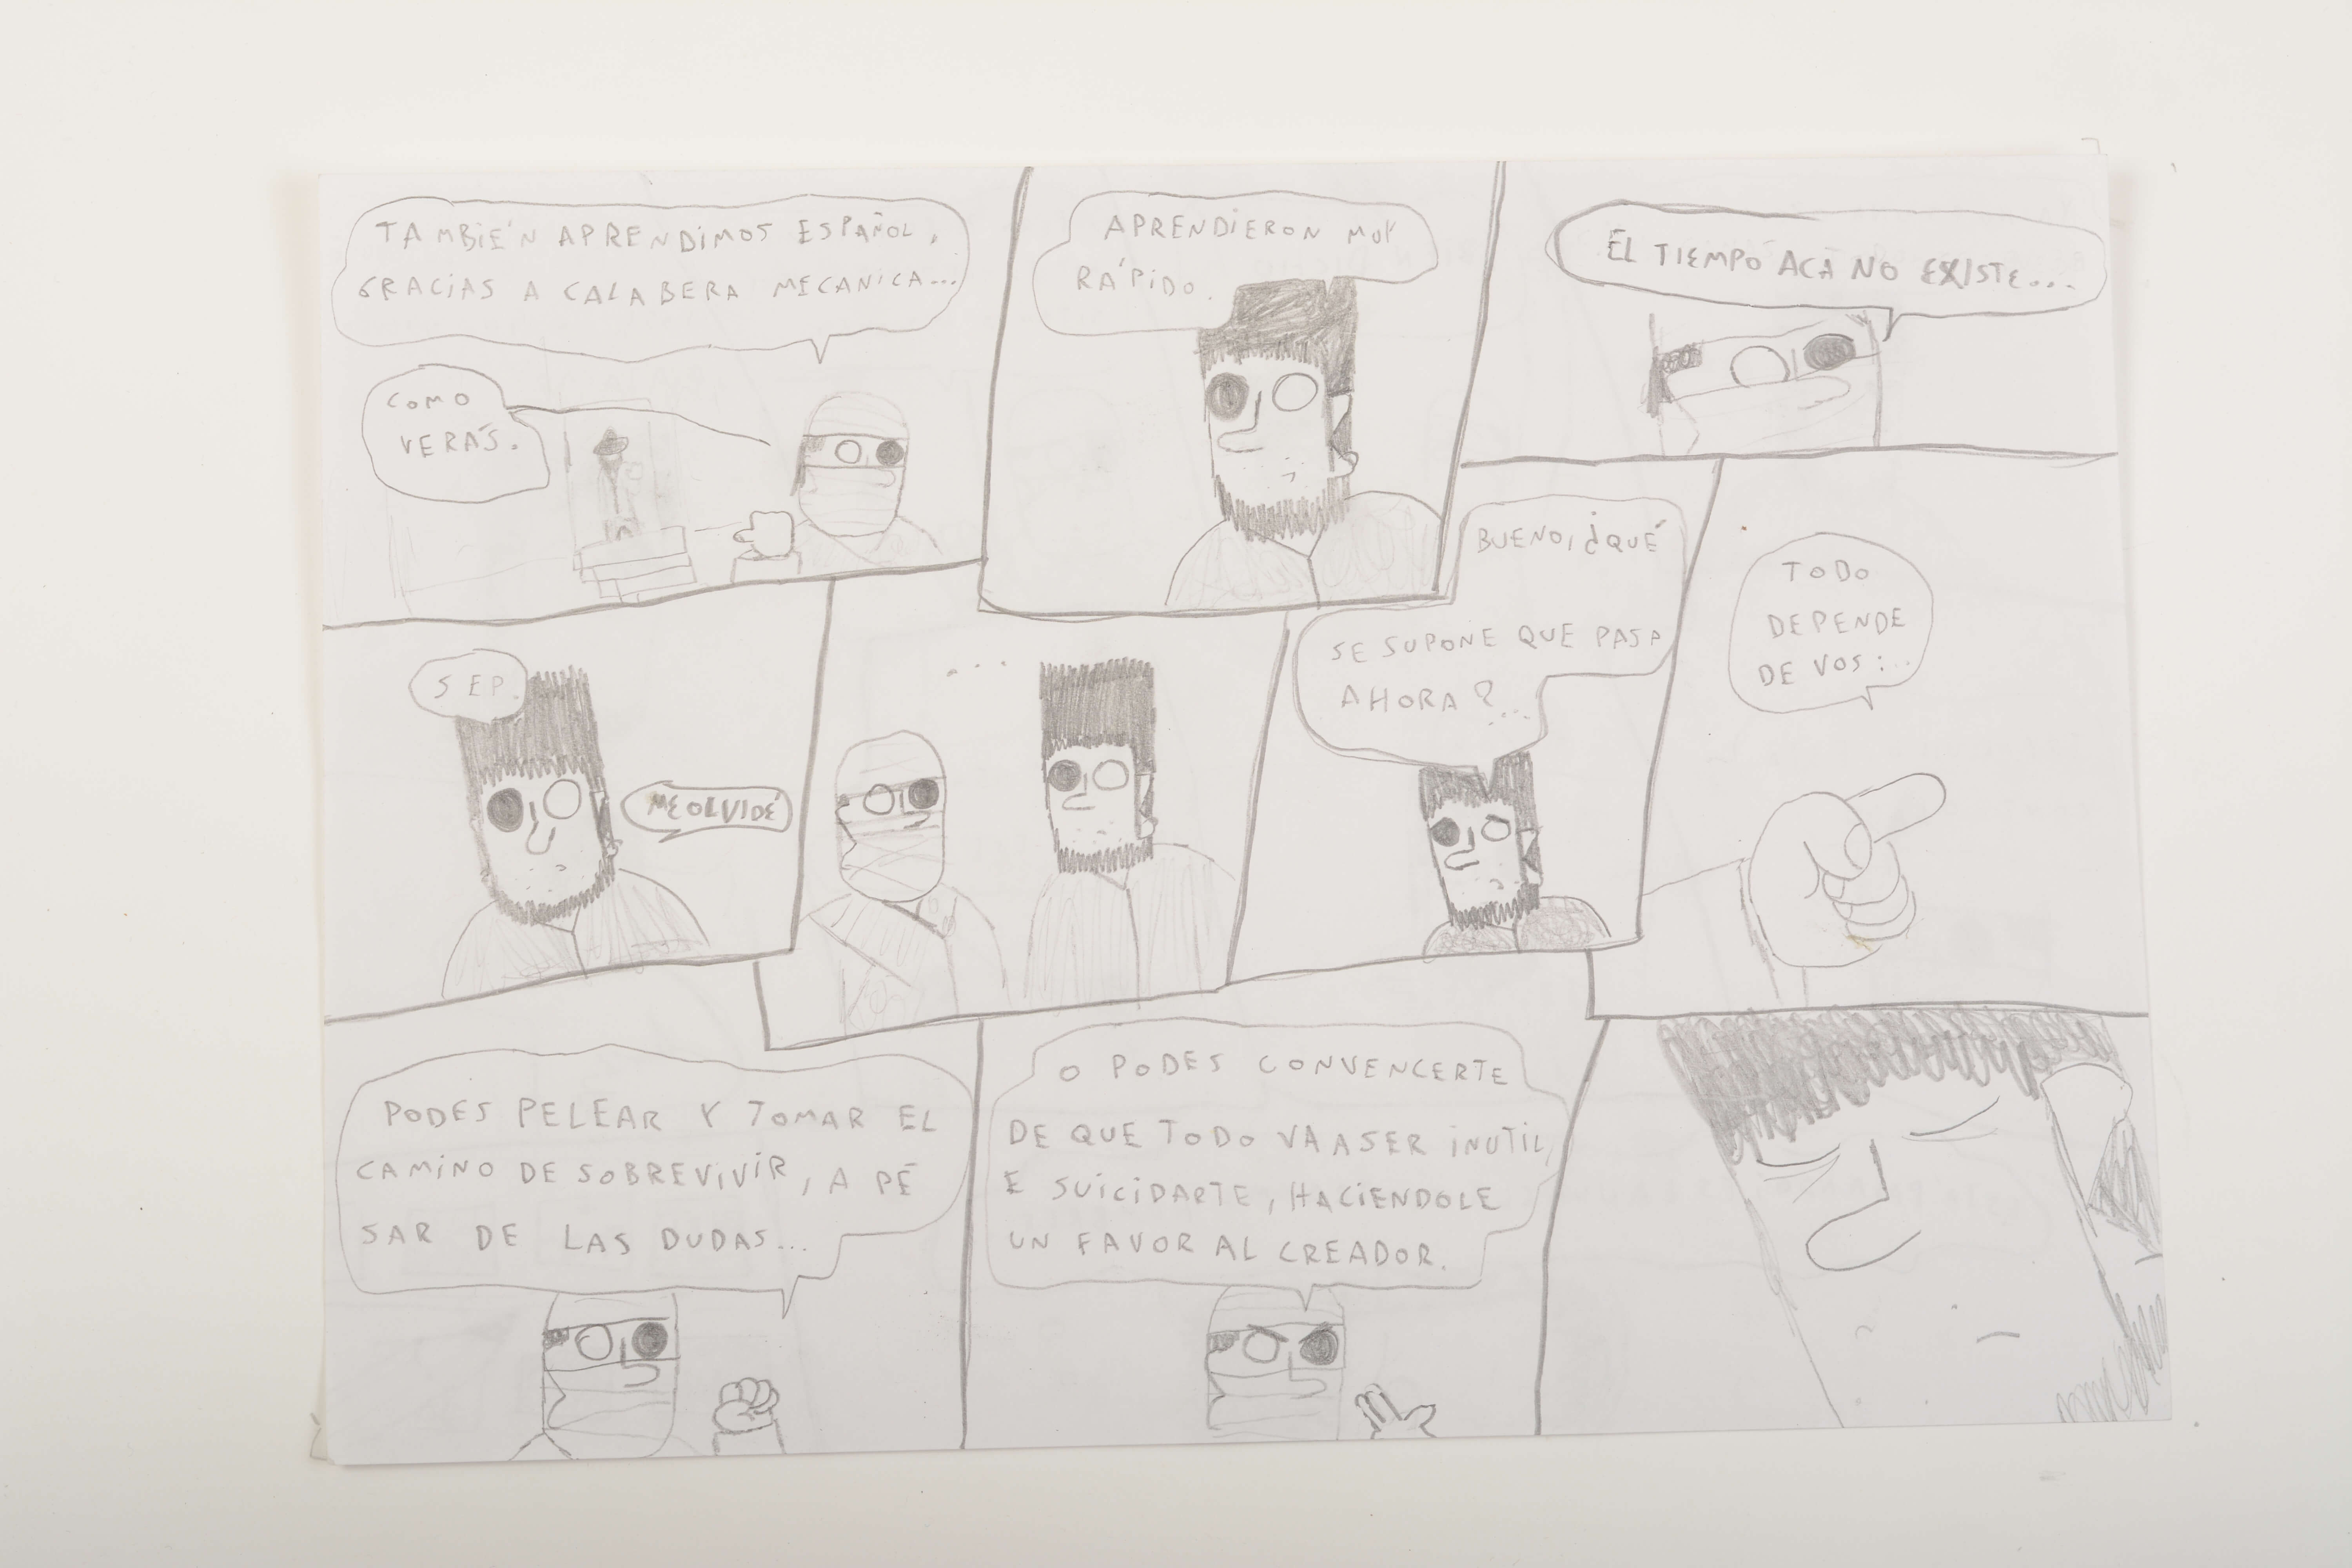 TAMBIÉN APRENDIMOS ESPAÑOL,
GRACIAS A CALABERA MECANICA...
COMO
VERÁS.
APRENDIERON MUY
RÁPIDO.
EL TIEMPO ACÁ NO EXISTE...
SEP.
ME OLVIDÉ
...
BUENO, ¿QUÉ
SE SUPONE QUE PASA
AHORA?...
TODO
DEPENDE
DE VOS:..
PODES PELEAR Y TOMAR EL
CAMINO DE SOBREVIVIR, A PE
SAR DE LAS DUDAS...
O PODES CONVENCERTE
DE QUE TODO VA A SER INUTIL,
E SUICIDARTE, HACIENDOLE
UN FAVOR AL CREADOR.